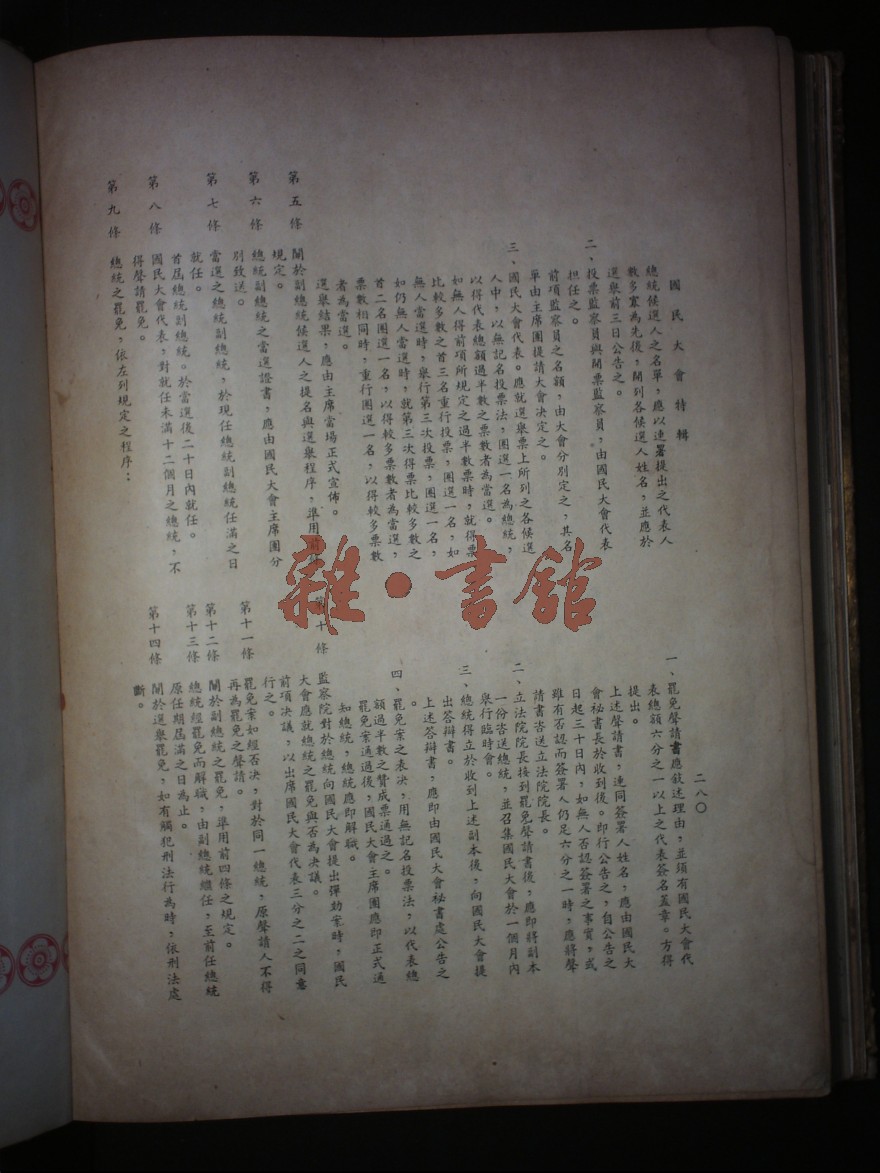 國民大會特輯
二八〇
總統候選人之名單,應以連署提出之代表人
數多寡為先後,開列各候選人姓名,並應於
選舉前三日公告之。
二、投票監察員與開票監察員,由國民大會代表
担任之。
前項監察員之名額,由大會分別定之,其名
單由主席團提請大會決定之。
三、國民大會代表。應就選舉票上所列之各候選
人中,以無記名投票法,圈選一名為總統,
以得代表總額過半數之票數者為當選。
如無人得前項所規定之過半數票時,就得票
比較多數之首三名重行投票,圈選一名,如
無人當選時,舉行第三次投票,圈選一名,
如仍無人當選時,就第三次得票比較多數之
首二名圈選一名,以得較多票數者為當選,
票數相同時,重行圈選一名,以得較多票數
者為當選。
選舉結果,應由主席當場正式宣佈。
第五條 關於副總統候選人之提名與選舉程序,準用前條
規定。
第六條 總統副總統之當選證書,應由國民大會主席團分
別致送。
第七條 當選之總統副總統,於現任總統副總統任滿之日
就任。
首屆總統副總統。於當選後二十日內就任。
第八條 國民大會代表,對就任未滿十二個月之總統,不
得聲請罷免。
第九條 總統之罷免,依左列規定之程序:
一、罷免聲請書應敘述理由,並須有國民大會代
表總額六分之一以上之代表簽名蓋章。方得
提出。
上述聲請書,連同簽署人姓名,應由國民大
會祕書長於收到後。即行公告之,自公告之
日起三十日內,如無人否認簽署之事實,或
雖有否認而簽署人仍足六分之一時,應將聲
請書咨送立法院院長。
二、立法院院長接到罷免聲請書後,應即將副本
一份咨送總統,並召集國民大會於一個月內
舉行臨時會。
三、總統得立於收到上述副本後,向國民大會提
出答辯書。
上述答辯書,應即由國民大會祕書處公告之
。
四、罷免案之表決,用無記名投票法,以代表總
額過半數之贊成票通過之。
罷免案通過後,國民大會主席團應即正式通
知總統,總統應即解職。
第十條 監察院對於總統向國民大會提出彈劾案時,國民
大會應就總統之罷免與否為決議。
前項決議,以出席國民大會代表三分之二之同意
行之。
第十一條 罷免案如經否決,對於同一總統,原聲請人不得
再為罷免之聲請。
第十二條 關於副總統之罷免,準用前四條之規定。
第十三條 總統經罷免而解職,由副總統繼任,至前任總統
原任期屆滿之日為止。
第十四條 關於選舉罷免,如有觸犯刑法行為時,依刑法處
斷。
雜·書館